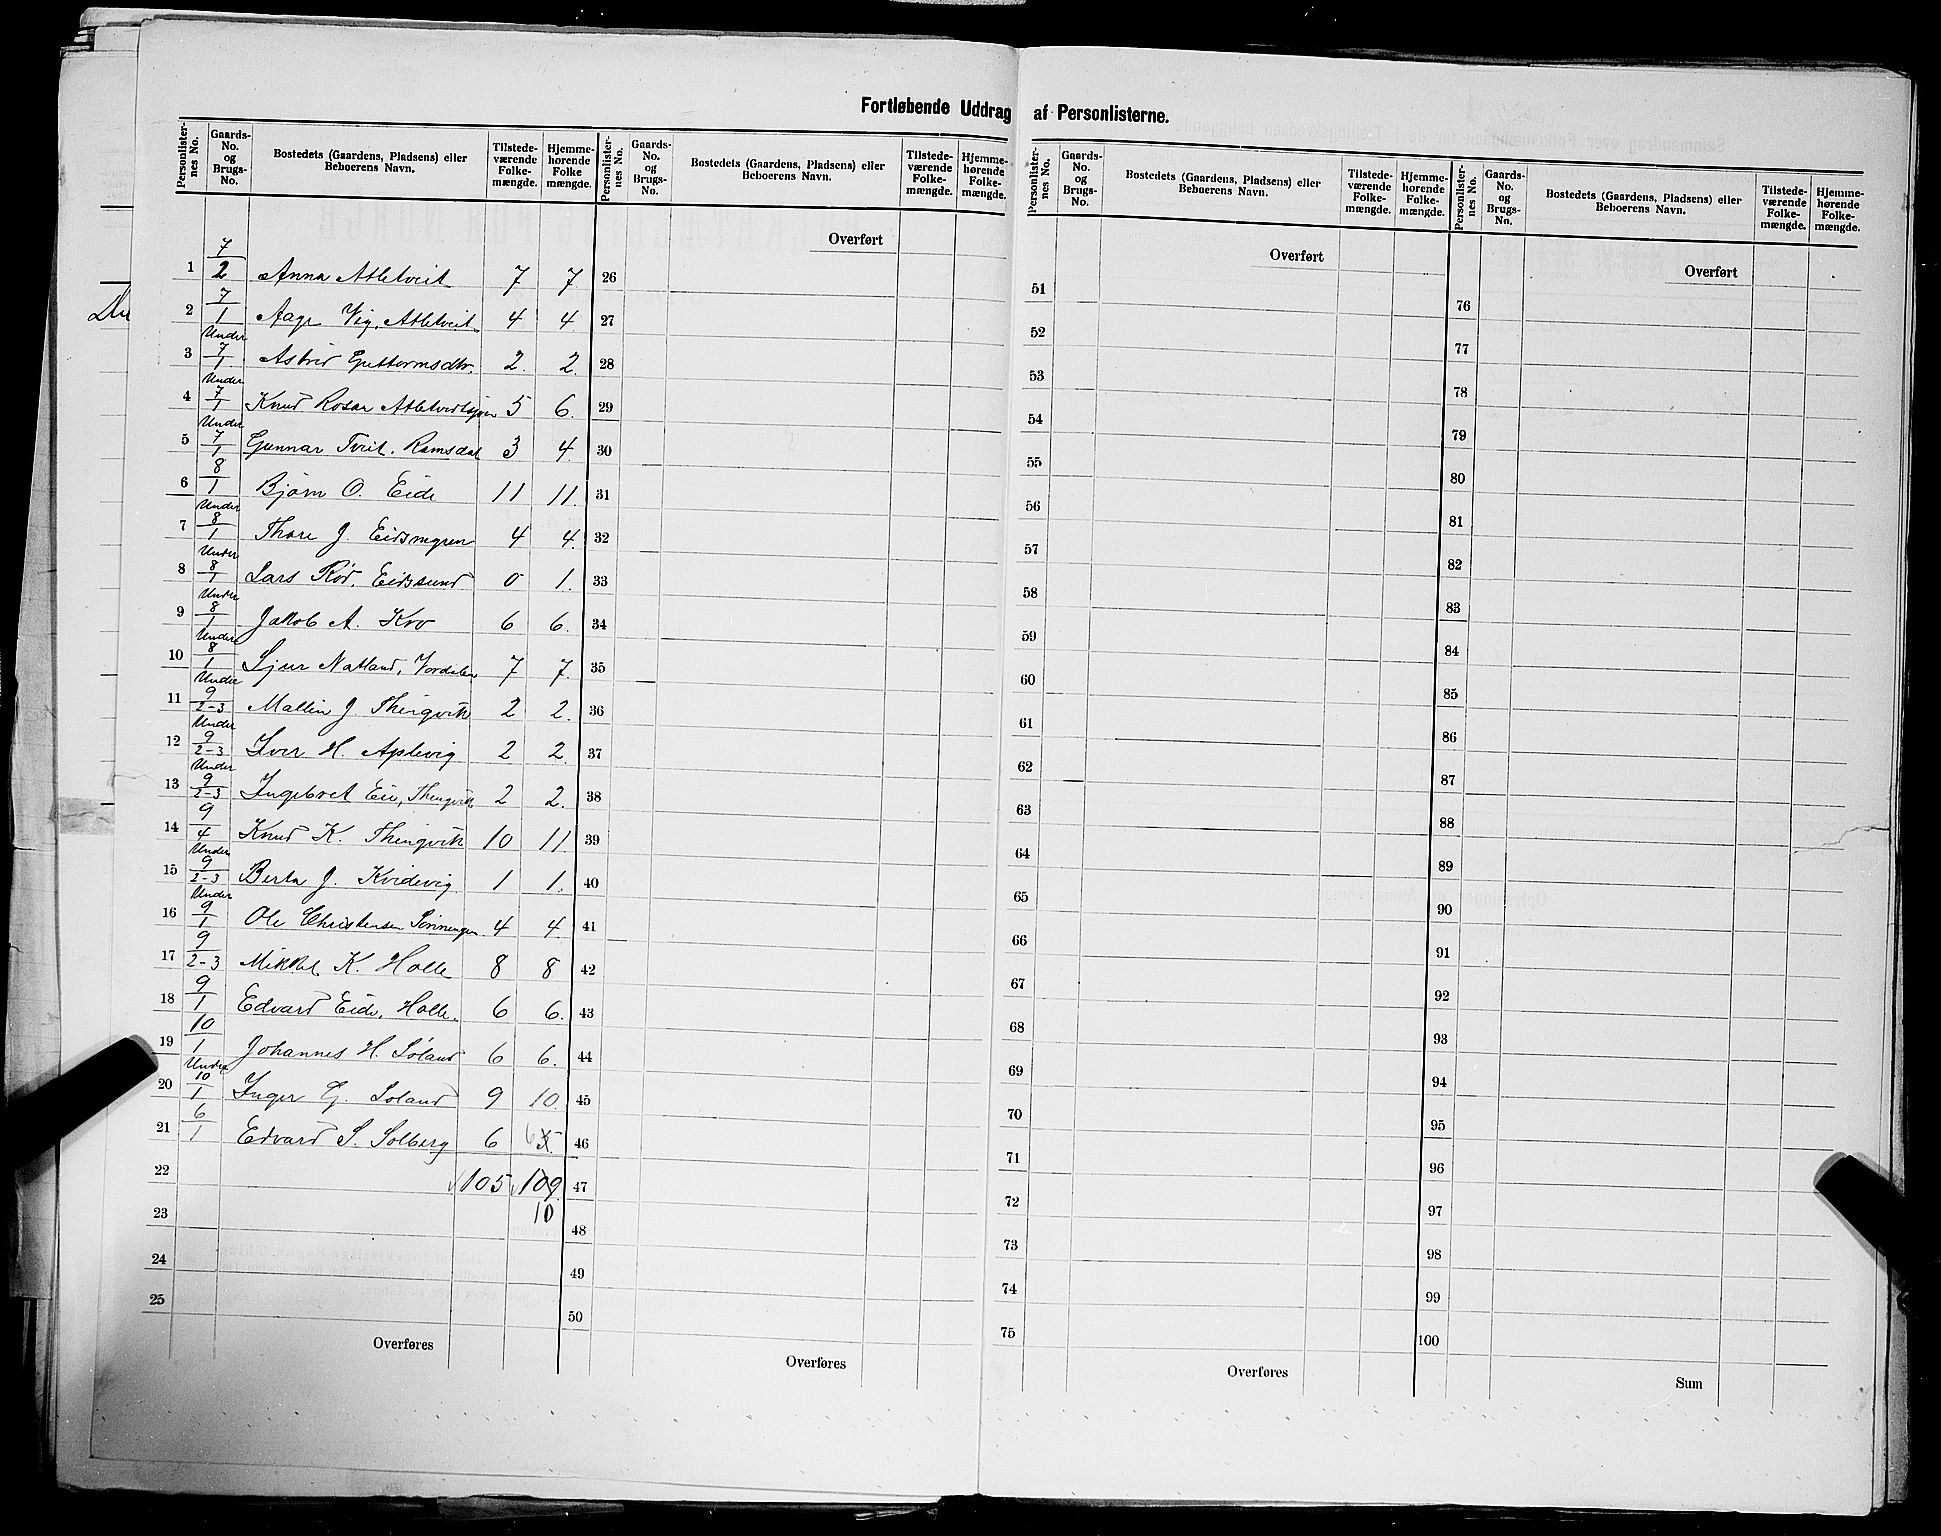 Fortløbende Uddrag af Personlisterne.
Personlister-nes No. | Gaards-No. og Brugs-No. | Bostedets (Gaardens, Pladsens) eller Beboerens Navn. | Tilstede-værende Folke-mængde. | Hjemme-hørende Folke mængde.
1 | 7/2 | Anna Atletveit | 7 | 7
2 | 7/1 | Aage Vig, Atletveit | 4 | 4
3 | Under 7/1 | Astrid Guttormsdtr. | 2. | 2.
4 | Under 7/1 | Knud Rosar Atletveitsjøen | 5 | 6.
5 | Under 7/1 | Gunnar Tveit. Ramsdal | 3 | 4.
6 | 8/1 | Bjørn O. Eide | 11 | 11.
7 | Under 8/1 | Thore J. Eidsmyren | 4 | 4.
8 | Under 8/1 | Lars Rød, Eidssund | 0 | 1.
9 | Under 8/1 | Jakob A. Kro | 6 | 6.
10 | Under 8/1 | Sjur Natland, Vordalen | 7 | 7.
11 | Under 9/2-3 | Mallin J. Thengvik | 2 | 2.
12 | Under 9/2-3 | Iver H. Aplevig | 2 | 2
13 | Under 9/2-3 | Ingebret Eie, Thengvik | 2 | 2.
14 | 9/4 | Knud K. Thengvik | 10 | 11.
15 | Under 9/2-3 | Berta J. Kvidevig | 1 | 1.
16 | Under 9/1 | Ole Christensen | 4 | 4.
17 | 9/2-3 | Mikkel K. Halle | 8 | 8
18 | 9/1 | Edvard Eide, Halle. | 6 | 6.
19 | 10/1 | Johannes H. Søland | 6 | 6.
20 | Under 10/1 | Inger G. Søland | 9 | 10.
21 | 6/1 | Edvard S. Solberg | 6 | 6 5.
22 | 105 | 109.
23 | 10
24
25
Overføres
Personlister-nes No. | Gaards-No. og Brugs-No. | Bostedets (Gaardens, Pladsens) eller Beboerens Navn. | Tilstede-værende Folke-mængde. | Hjemme-hørende Folke-mængde.
Overført
26
27
28
29
30
31
32
33
34
35
36
37
38
39
40
41
42
43
44
45
46
47
48
49
50
Overføres
Personlister-nes No. | Gaards-No. og Brugs-No. | Bostedets (Gaardens, Pladsens) eller Beboerens Navn. | Tilstede-værende Folke-mængde. | Hjemme-hørende Folke-mængde.
Overført
51
52
53
54
55
56
57
58
59
60
61
62
63
64
65
66
67
68
69
70
71
72
73
74
75
Overføres
Personlister-nes No. | Gaards-No. og Brugs-No. | Bostedets (Gaardens, Pladsens) eller Beboerens Navn. | Tilstede-værende Folke-mængde. | Hjemme-hørende Folke-mængde.
Overført
76
77
78
79
80
81
82
83
84
85
86
87
88
89
90
91
92
93
94
95
96
97
98
99
100
Sum